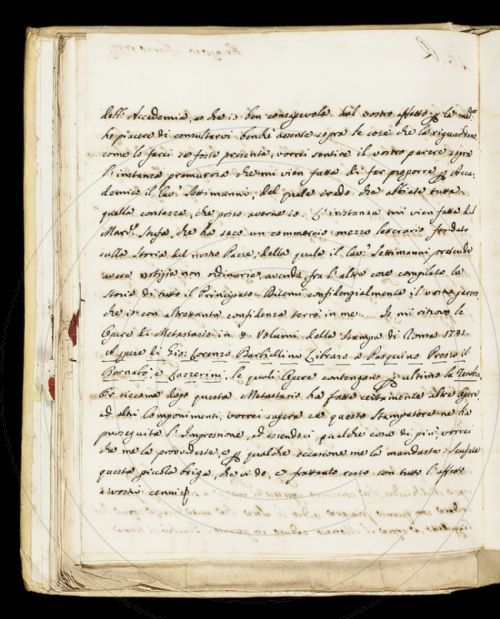 dell'Accademia, so che è ben consapevole del vostro affetto p la med.ª
ho piacere di consultarvi benchè assente sopra le cose che la riguardano,
come lo farei se foste presente, vorrei sentire il vostro parere sopra
l'instanza premurosa che mi vien fatta di far proporre p Acca-
demico il Cav.r Settimanni, del quale credo che abbiate tutta
quella contezza, che posso averne io. L'instanza mi vien fatta dal
March. Stufa, che ha seco un commercio mezzo letterario fondato
sulla Storia del nostro Paese, della quale il Cav.r Settimanni pretende
avere notizie non ordinarie, avendo fra l'altre cose compilato la
Storia di tutto il Principato. Ditemi confidenzialmente il vostro parere,
che io con altrettanta confidenza terrò in me. Io mi ritrovo le
Opere di Metastasio in 4 Volumi della stampa di Roma 1741.
A spese di Gio: Lorenzo Barbiellini Libraro a Pasquino Presso il
Bernabò, e Lazzerini, le quali Opere contengono p ultimo la Zenobia.
E siccome dopo questa Metastasio ha fatte certamente altre Opere
ed altri Componimenti, vorrei sapere se questo Stampatore ne ha
proseguita l'Impressione, ed essendoci qualche cosa di più, vorrei
che me la provvedeste, e p qualche occasione me la mandaste. Scusate
questa piccola briga, che vi do, e frattanto resto con tutto l'affetto
a vostri cenni